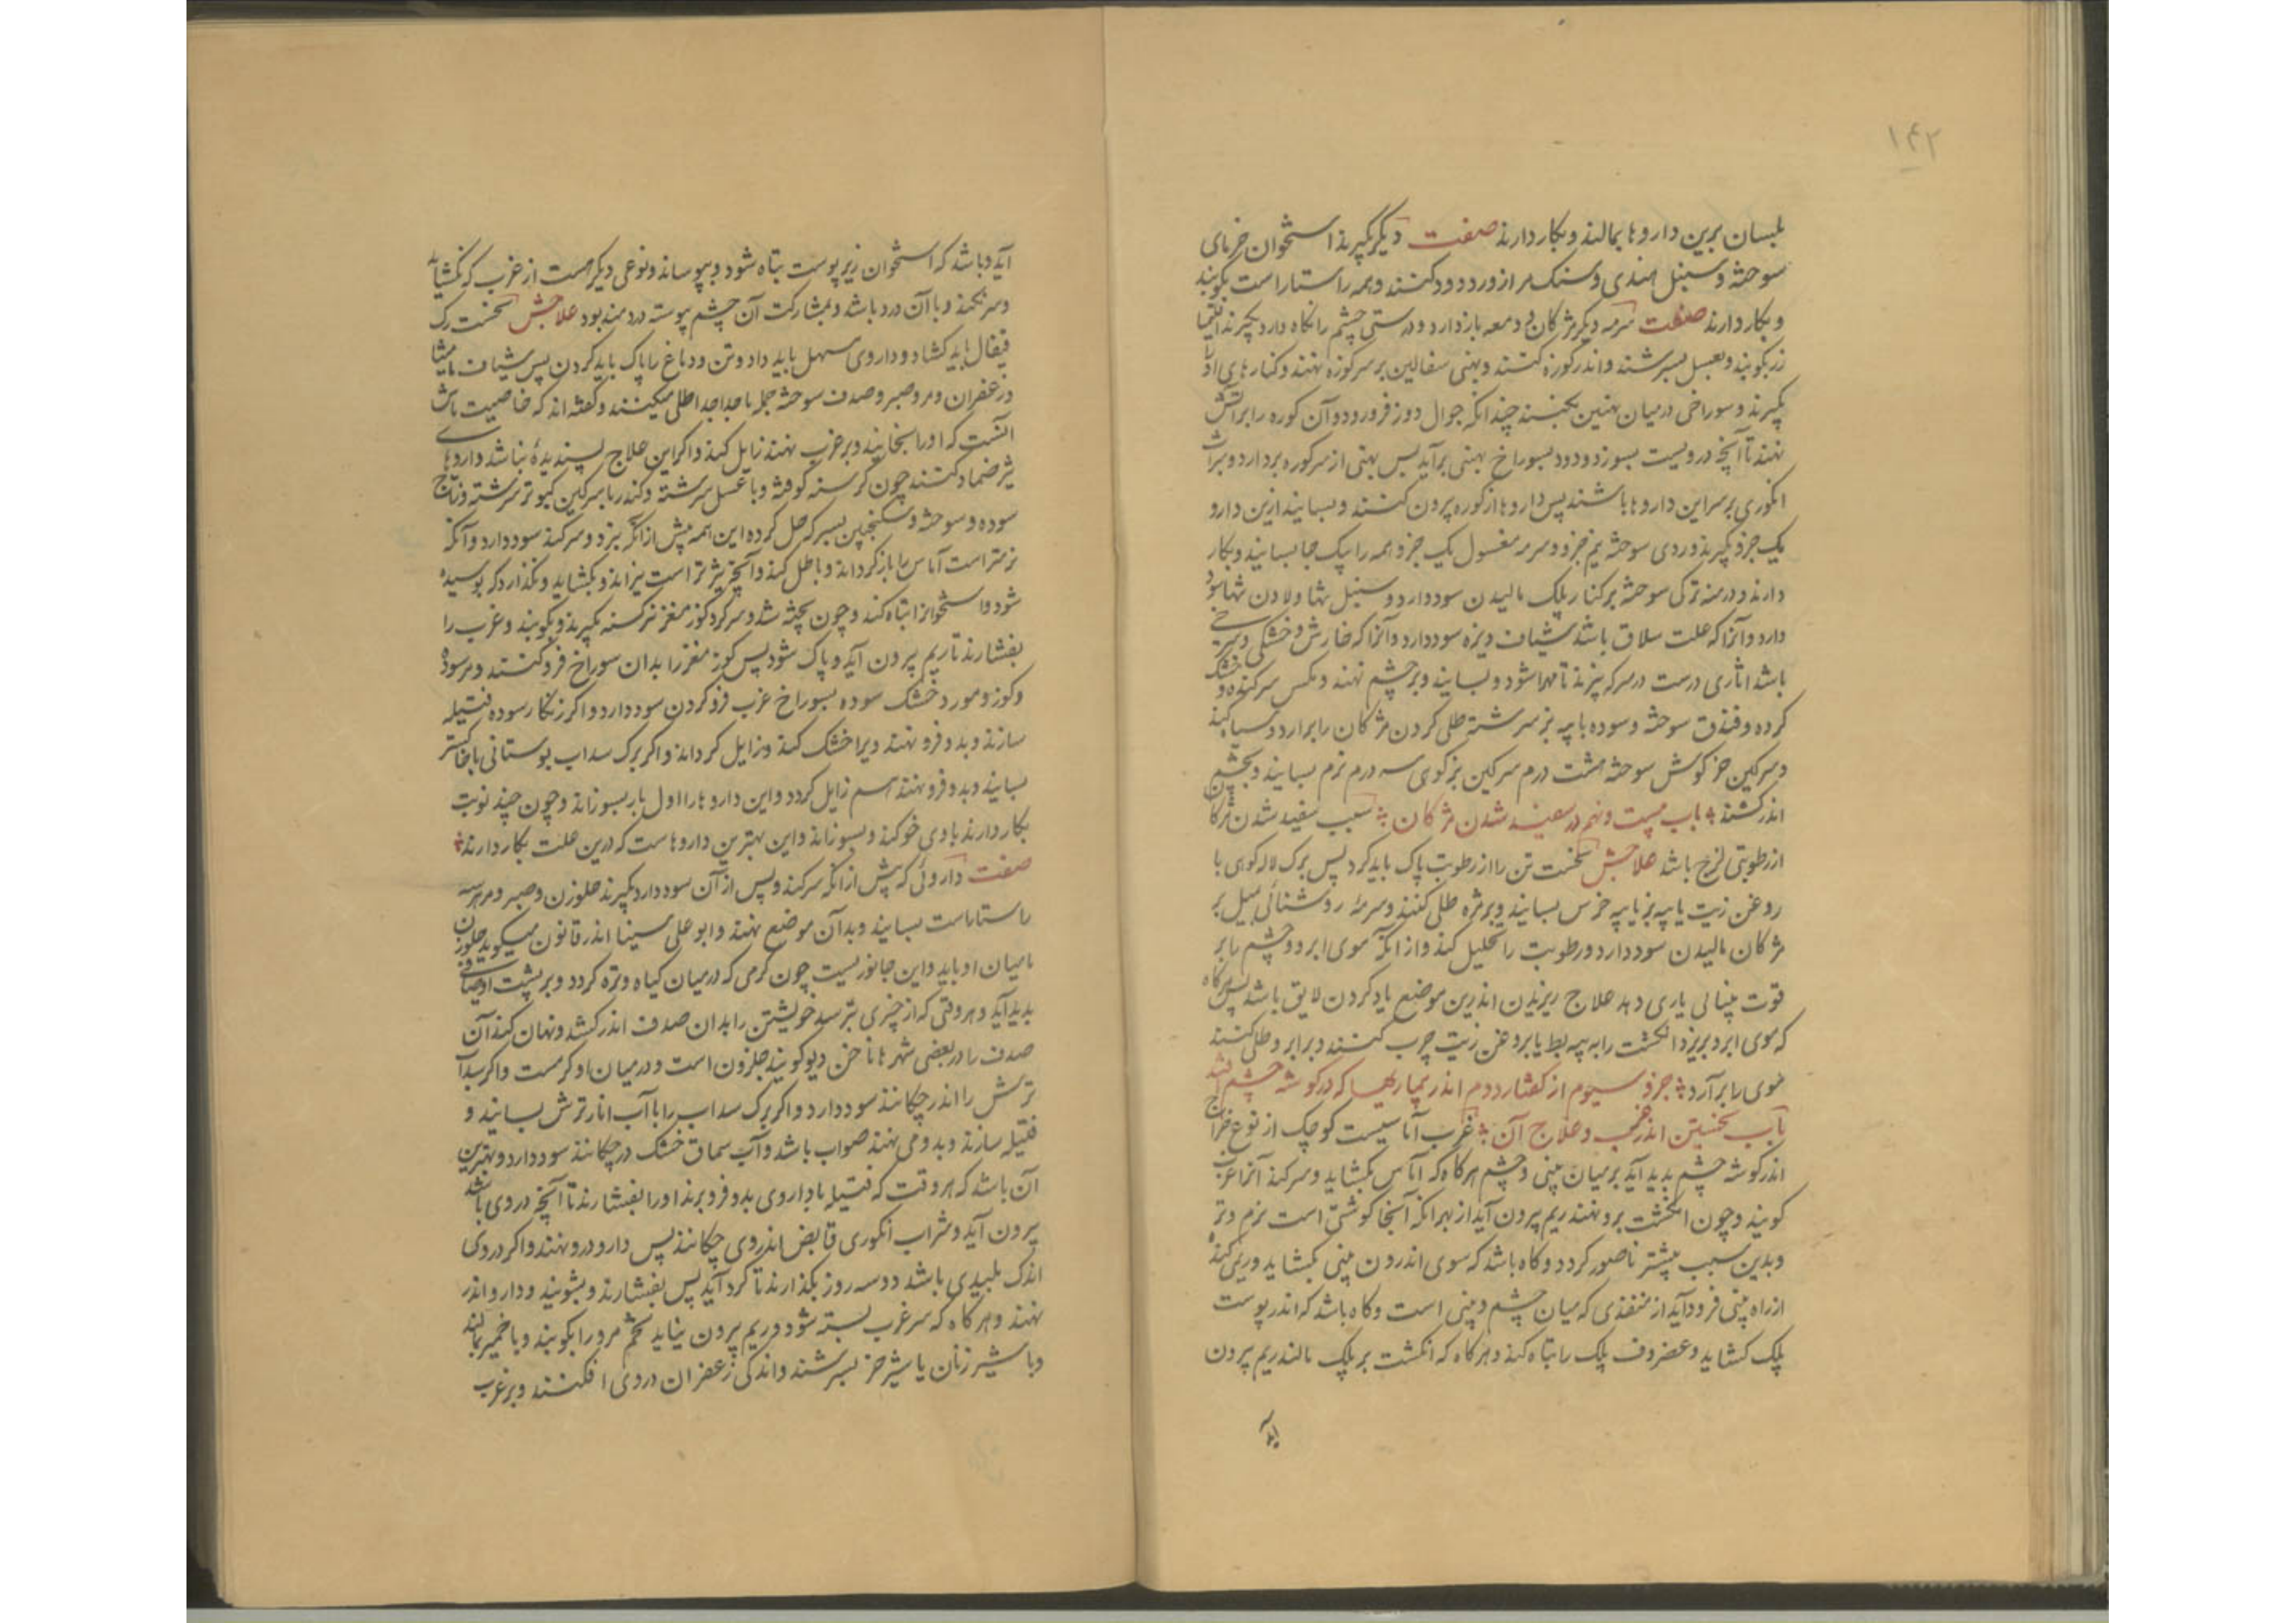 ۱۴۲
بلسان برین داروها بمالند و بکار دارند صفت دیگر بگیرند استخوان خرمای
سوخته و سنبل هندی و سنک لازورد و دود کندر و همه راستا راست بکوبند
و بکار دارند صفت سرمه دیگر مژکان و دمعه بازدارد و درستی چشم را نکاه دارد بگیرند اقلیمیا
زر بکوبند و بعسل بسرشند و اندر کوزه کنند و بهنی سفالین بر سر کوزه نهند و کنارهای او را
بگیرند و سوراخی در میان بهنین بکنند چندانکه جوال دوز فرو رود و آن کوزه را بر آتش
نهند تا آنچه درویست بسوزد و دود بسوراخ بهنی برآید پس بهنی از سر کوزه بردارد و شراب
انکوری بر سر این داروها باشند پس داروها از کوزه بیرون کنند و بسایند ازین دارو
یک جزو بگیرند و روی سوخته نیم جزو و سرمه مغسول یک جزو همه را یک جا بسایند و بکار
دارند و درمنه ترکی سوخته بر کنار پلک مالیدن سود دارد و سنبل تنها و لادن تنها سود
دارد و آنرا که علت سلاق باشد شیاف ویزه سود دارد و آنرا که خارش و خشکی و سرخی
باشد اناری درست در سرکه بپزند تا مهرا شود و بسایند و بر چشم نهند و مکس سر کنده و خشک
کرده و فندق سوخته و سوده با پیه بز سرشته طلی کردن مژکان را برآرد و سیاه کند
و سرکین خرکوش سوخته هشت درم سرکین بز کوهی سه درم نرم بسایند و بچشم
اندر کشند باب بیست و نهم در سفید شدن مژکان سبب سفید شدن مژکان
از رطوبتی لزج باشد علاجش نخست تن را از رطوبت پاک باید کرد پس برک لاله کوهی با
روغن زیت یا پیه بز یا پیه خرس بسایند و بر مژه طلی کنند و سرمه روشنائی بمیل بر
مژکان مالیدن سود دارد و رطوبت را تحلیل کند و از آنکه موی ابرو و چشم را بر
قوت بینائی یاری دهد علاج ریزیدن اندرین موضع یاد کردن لایق باشد پس هرکاه
که موی ابرو بریزد انکشت را به پیه بط یا بروغن زیت چرب کنند و بر ابرو طلی کنند
موی را برآرد جزو سیوم از کفتار دوم اندر بیماریها که در کوشه چشم افتد
باب نخستین اندر غرب و علاج آن غرب آماسیست کوچک از نوع خراج
اندر کوشه چشم پدید آید بر میان بینی و چشم هرکاه که آماس بکشاید و سر کند آنرا غرب
کویند و چون انکشت برو نهند ریم بیرون آید از بهر آنکه آنجا کوشتی است نرم و تر
و بدین سبب بیشتر ناصور کردد و کاه باشد که سوی اندرون بینی بکشاید و ریم کند
از راه بینی فرود آید از منفذی که میان چشم و بینی است و کاه باشد که اندر پوست
پلک کشاید و غضروف پلک را تباه کند و هرکاه که انکشت بر پلک مالند ریم بیرون
آید
آید و باشد که استخوان زیر پوست تباه شود و بپوساند و نوعی دیکر هست از غرب که نکشاید
و سر نکند و با آن درد باشد و بمشارکت آن چشم پیوسته دردمند بود علاجش نخست رک
قیفال باید کشاد و داروی مسهل باید داد و تن و دماغ را پاک باید کردن پس شیاف مامیثا
و زعفران و مر و صبر و صدف سوخته جمله یا جداجدا طلی میکنند و کفته اند که خاصیت ماش
آنست که او را بخایند و بر غرب نهند زایل کند و اکر این علاج پسندیده نباشد داروهای
تیز ضماد کنند چون کرسنه کوفته و با عسل سرشته و کندر با سرکین کبوتر سرشته و زاج
سوده و سوخته و سکبینج بسرکه حل کرده این همه پیش از آنکه بپزد و سر کند سود دارد و آنکه
نرمتر است آماس را بازکرداند و باطل کند و آنچه تیزتر است بپزاند و بکشاید و نکذارد که پوسیده
شود و استخوانرا تباه کند و چون پخته شد و سر کرد کوز مغز نرکسنه بگیرند و بکوبند و غرب را
بفشارند تا ریم بیرون آید و پاک شود پس کوز مغز را بدان سوراخ فرو کنند و مر سوده
و کوز و مورد خشک سوده بسوراخ غرب فرو کردن سود دارد و اکر زنکار سوده فتیله
سازند و بدو فرو نهند ویرا خشک کند و زایل کرداند و اکر برک سداب بوستانی با خاکستر
بسایند و بدو فرو نهند هم زایل کردد و این داروها را اول بار بسوزاند و چون چند نوبت
بکار دارند با وی خو کند و نسوزاند و این بهترین داروهاست که درین علت بکار دارند
صفت داروئی که پیش از آنکه سر کند و پس از آن سود دارد بگیرند حلزون و صبر و مر هر سه
راستا راست بسایند و بدان موضع نهند و ابو علی سینا اندر قانون میکوید حلزون
با میان او باید و این جانوریست چون کرمی که در میان کیاه و تره کردد و بر پشت او صدفی
پدید آید و هر وقتی که از چیزی بترسد خویشتن را بدان صدف اندر کشد و نهان کند آن
صدف را در بعضی شهرها ناخن دیو کویند حلزون است و در میان او کرمست و اکر سداب
ترش را اندر چکانند سود دارد و اکر برک سداب را با آب انار ترش بسایند و
فتیله سازند و بدو می نهند صواب باشد و آب سماق خشک در چکانند سود دارد و بهترین
آن باشد که هر وقت که فتیله با داروی بدو فرو برند او را بفشارند تا آنچه در وی باشد
بیرون آید و شراب انکوری قابض اندر وی چکانند پس دارو درو نهند و اکر در وی
اندک پلیدی باشد دو سه روز بکذارند تا کرد آید پس بفشارند و بشویند و دارو اندر
نهند و هرکاه که سر غرب بسته شود و ریم بیرون نیاید تخم مرو را بکوبند و با خمیر بمالند
و با شیر زنان یا شیر خر بسرشند و اندکی زعفران در وی افکنند و بر غرب